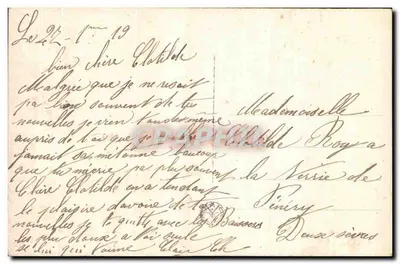 Le 27 - 1er 19
bien chère Clotilde
Malgrée que je ne resoit
pa bien souvent de tes
nouvelles je vien tandemême
aupris de toi que
jamait sa métonne baucoup
que tu mecri pa plu souvent
Chère Clotilde en a tendant
le plaisire davoire de tes
nouvelles je te quitte avec les Baissers
les plus doux a toi seule
se lui qui taime
Mademoiselle
Clotilde Roy a
la Verrie de
Périry
Deux sèvres